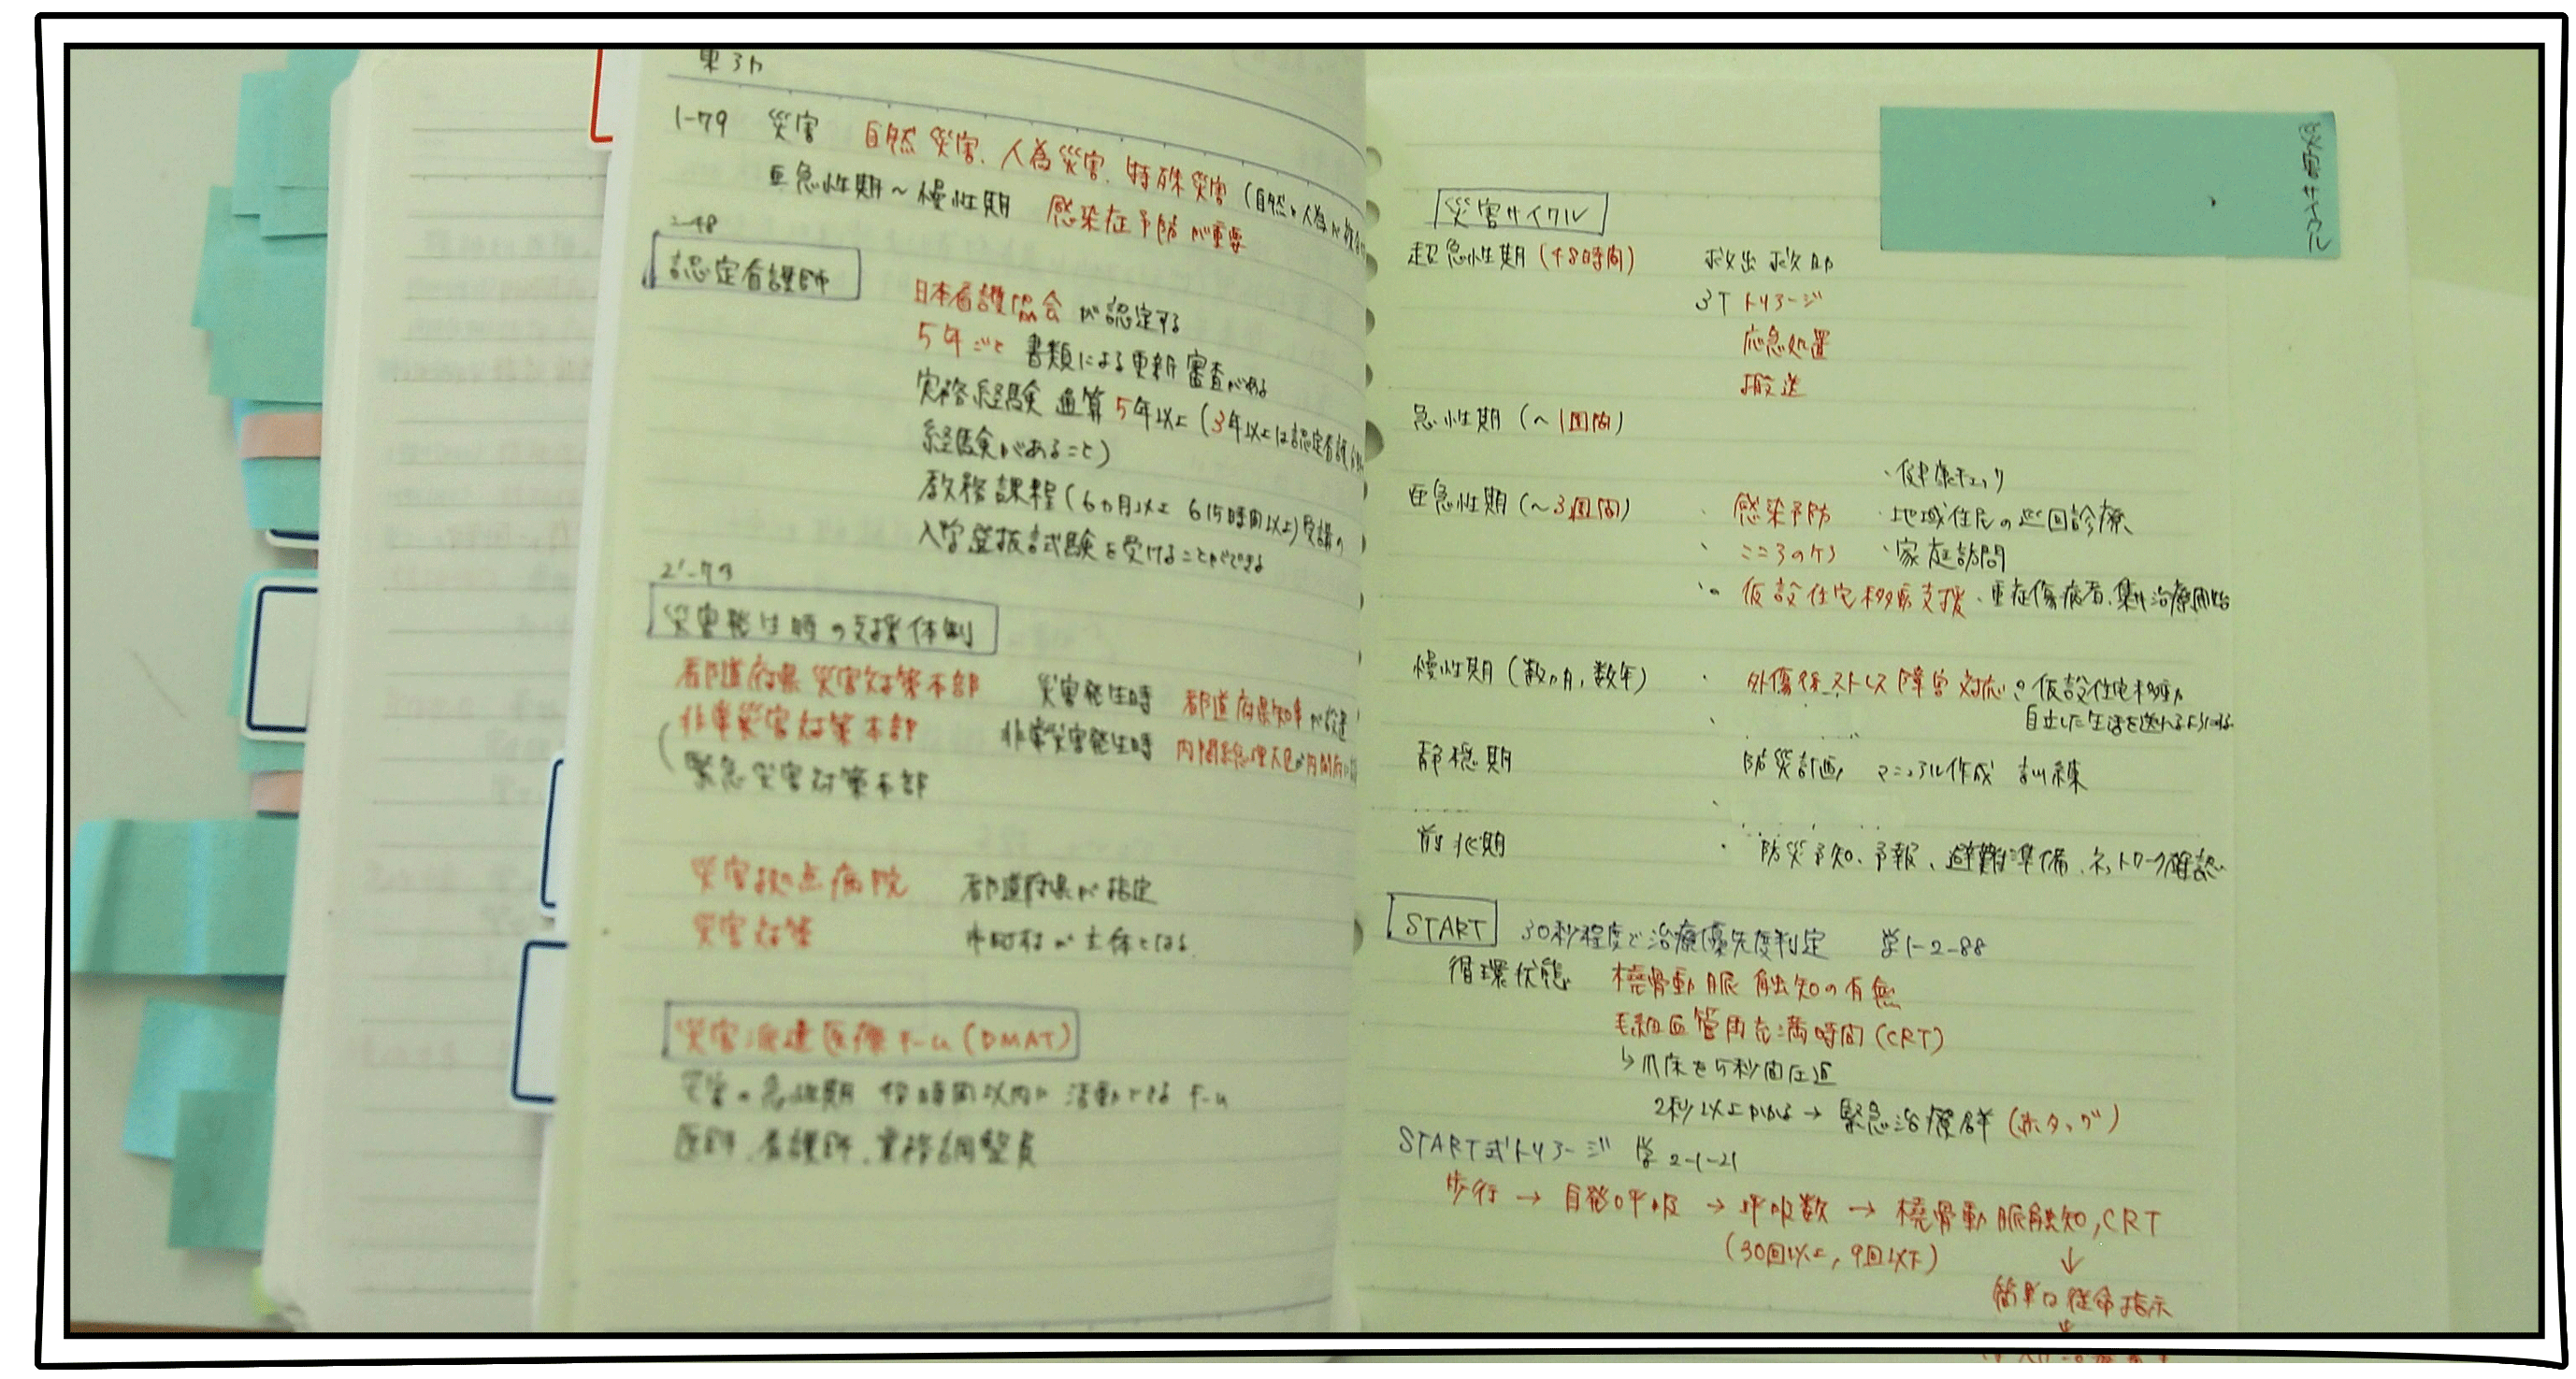 1-79 災害 自然災害、人為災害、特殊災害(自然と人為が
亜急性期～慢性期 感染症予防が重要
2-48
認定看護師
日本看護協会が認定する
5年ごと 書類による更新審査がある
実務経験 通算5年以上(3年以上は認定看護
経験があること)
教務課程(6ヵ月以上 615時間以上)受講の
入学選抜試験を受けることができる
2-79
災害発生時の支援体制
都道府県災害対策本部 災害発生時 都道府県知事が設置
非常災害対策本部 非常災害発生時 内閣総理大臣が内閣府に
(緊急災害対策本部
災害拠点病院 都道府県が指定
災害対策 市町村が主体となる
災害派遣医療チーム(DMAT)
災害の急性期 48時間以内に活動できるチーム
医師、看護師、業務調整員
災害サイクル
災害サイクル
超急性期(48時間) 救出 救助
3T トリアージ
応急処置
搬送
急性期(～1週間)
・健康チェック
亜急性期(～3週間) ・感染予防 ・地域住民の巡回診療
・こころのケア ・家庭訪問
・仮設住宅移動支援・重症傷病者、集中治療開始
慢性期(数ヵ月,数年) ・外傷後ストレス障害対応 仮設住宅移動
自立した生活を送れるようにする
静穏期 防災計画 マニュアル作成 訓練
前兆期 ・防災予知、予報、避難準備、ネットワーク確認
START 30秒程度で治療優先度判定 学1-2-88
循環状態 橈骨動脈触知の有無
毛細血管再充満時間(CRT)
↳爪床を5秒間圧迫
2秒以上かかる→緊急治療群(赤タッグ)
START式トリアージ 学2-1-21
歩行→自発呼吸→呼吸数→橈骨動脈触知,CRT
(30回以上,9回以下) ↓
簡単な従命指示
↓